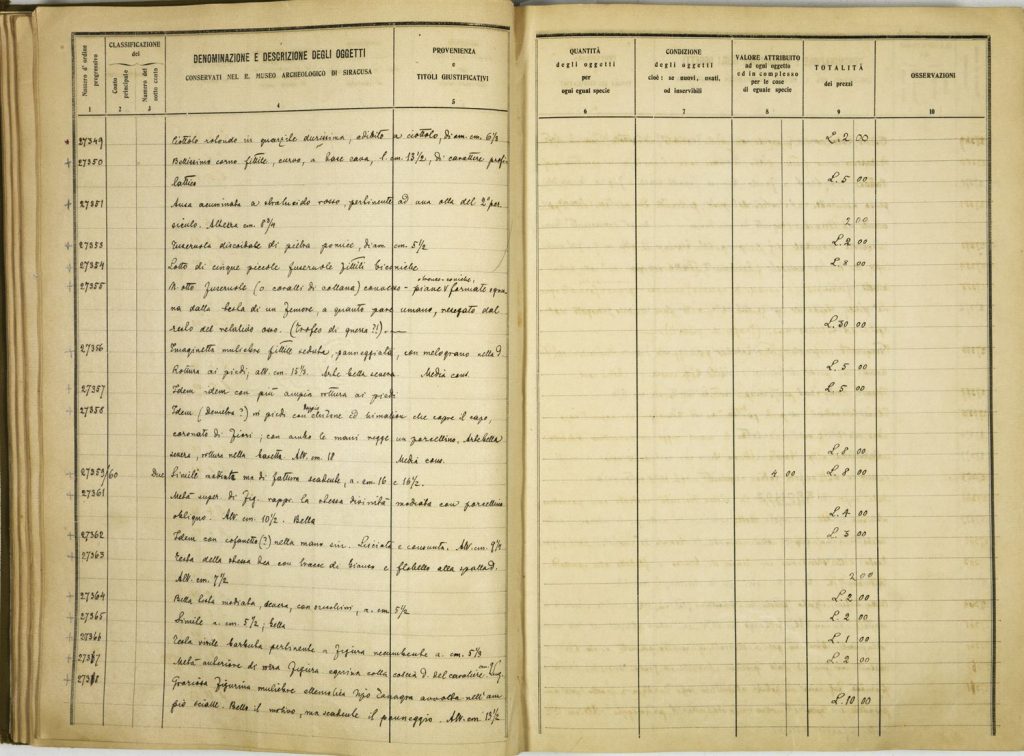 Numero d'ordine progressivo
CLASSIFICAZIONE
del
Conto principale
Numero del sotto conto
DENOMINAZIONE E DESCRIZIONE DEGLI OGGETTI
CONSERVATI NEL R. MUSEO ARCHEOLOGICO DI SIRACUSA
PROVENIENZA
e
TITOLI GIUSTIFICATIVI
1 2 3 4 5
QUANTITÀ
degli oggetti
per
ogni egual specie
CONDIZIONE
degli oggetti
cioè: se nuovi, usati,
od inservibili
VALORE ATTRIBUITO
ad ogni oggetto
ed in complesso
per le cose
di eguale specie
TOTALITÀ
dei prezzi
OSSERVAZIONI
6 7 8 9 10
27349 Ciottolo rotondo in quarzite durissima, adibito a ciottolo, diam. cm. 6 1/2 L. 2 00
27350 Bellissimo corno fittile, curvo, a base cava, l. cm. 13 1/2, di carattere profi-
lattico L. 5 00
27351 Ansa acuminata a stralucido rosso, pertinente ad una olla del 2° per.
siculo. Altezza cm. 8 3/4 2 00
27353 Fuseruola discoidale di pietra pomice, diam. cm. 5 1/2 L. 2 00
27354 Lotto di cinque piccole fuseruole fittili biconiche L. 8 00
27355 N. otto fuseruole (o cavalli di collana) convesso-piane tronco-coniche, formate ognu
na dalla testa di un femore, a quanto pare umano, resegato dal
resto del relativo osso. (trofeo di guerra ?!) L. 30 00
27356 Imaginetta muliebre fittile seduta, panneggiata, con melograno nella d.
Rottura ai piedi; alt. cm. 15 1/2. Arte bella severa Media cons. L. 5 00
27357 Idem idem con più ampia rottura ai piedi L. 5 00
27358 Idem (Demetra ?) in piedi con doppio chitone ed himation che copre il capo,
coronato di fiori; con ambo le mani regge un porcellino. Arte bella
severa, rottura nella basetta. Alt. cm. 18 Media cons. L. 8 00
27359/60 Due Simile modiata ma di fattura scadente, a. cm. 16 e 16 1/2. 4 00 L. 8 00
27361 Metà super. di fig. rappr. la stessa divinità modiata con porcellino
obliquo. Alt. cm. 10 1/2. Bella L. 4 00
27362 Idem con cofanetto (?) nella mano sin. Lisciata e consunta. Alt. cm. 9 1/2 L. 3 00
27363 Testa della stessa dea con tracce di bianco e flabello alla spalla d.
Alt. cm. 7 1/2 2 00
27364 Bella testa modiata, severa, con orecchini, a. cm. 5 1/2 L. 2 00
27365 Simile a. cm. 5 1/2; bella L. 2 00
27366 Testa virile barbuta pertinente a figura recumbente a. cm. 5 1/2 L. 1 00
27367 Metà anteriore di rozza figura equina colla coscia d. del cavaliere L. 2 00
27368 Graziosa figurina muliebre ellenistica tipo Tanagra avvolta nell'am
pio scialle. Bello il motivo, ma scadente il panneggio. Alt. cm. 13 1/2 L. 10 00